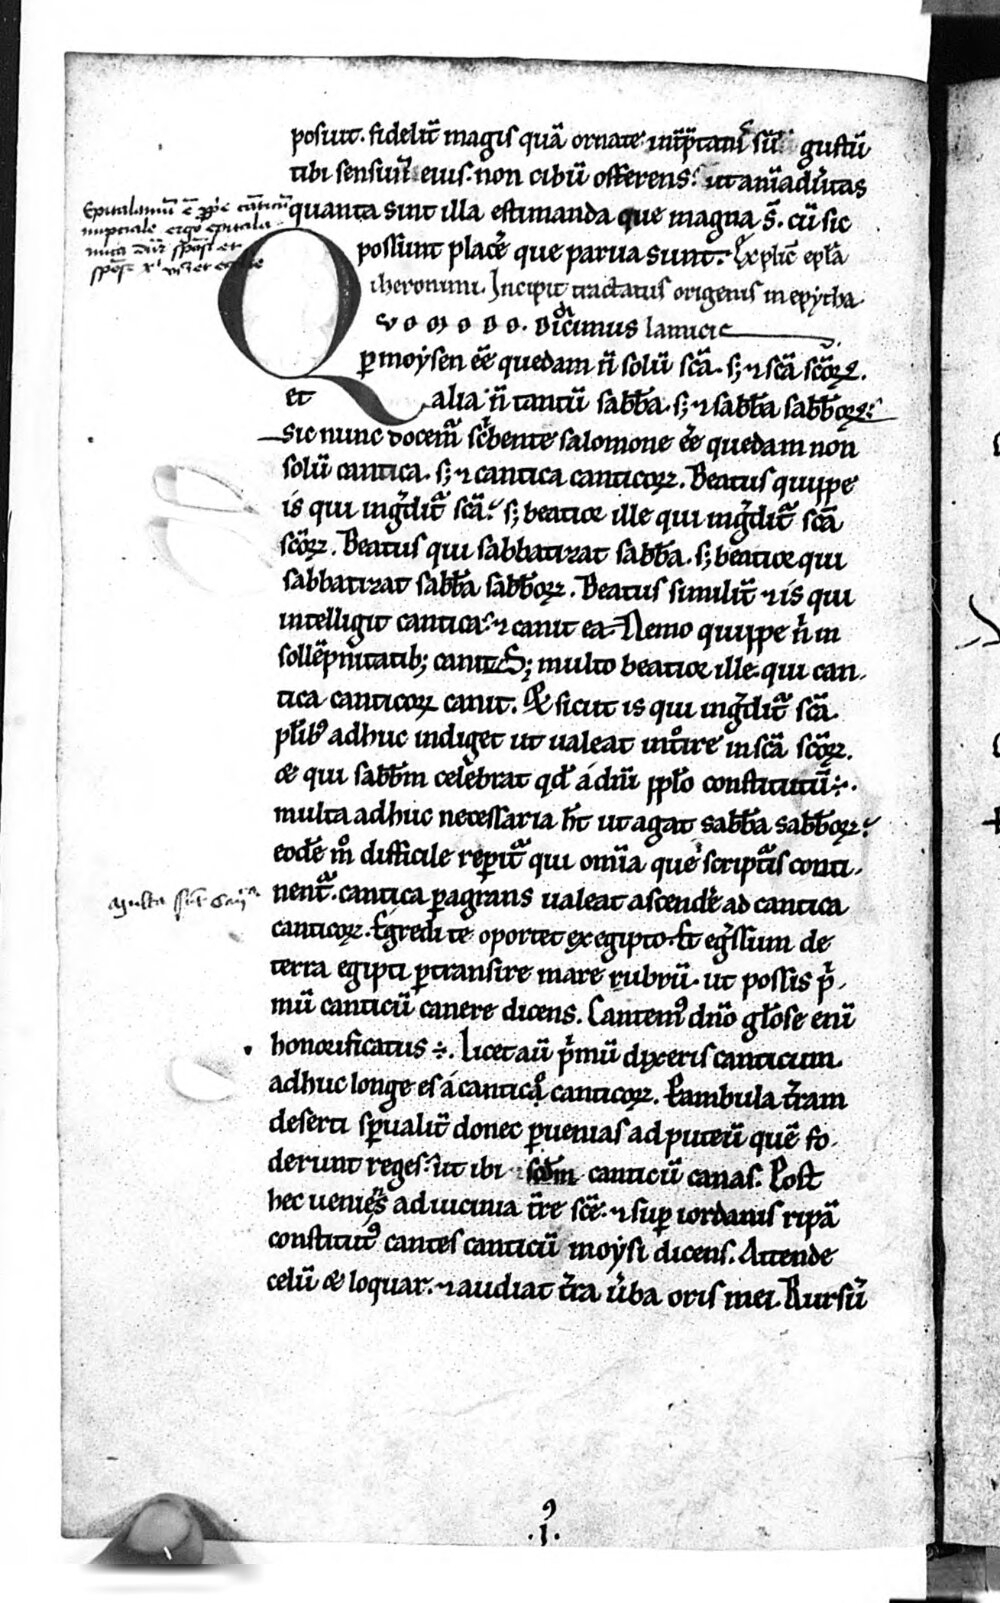 posuit. fidelit̄ magis quā ornate int̄p̄tatus sū gustū
tibi sensuū eius. non cibū offerens. ut aniaduertas
quanta sint illa estimanda que magna s̄. cū sic
possunt place᷑ que parua sunt. Explic̄ epl̄a
iheronimi. Incipit tractatus origenis in epytha
Epitalamiū ē ꝓp̄e cāticū
nuptiale ergo epitala
Quomodo. didicimus lamicis
ꝑ moysen eē quedam n̄ solū sc̄a. sꝫ ⁊ sc̄a sc̄oꝝ.
et alia n̄ tantū sabb̄a. sꝫ ⁊ sabb̄a sabb̄oꝝ.
sic nunc docem̄ sc̄bente salomone eē quedam non
solū cantica. sꝫ ⁊ cantica canticoꝝ. Beatus quippe
is qui inḡdit̄ sc̄a. sꝫ beatior ille qui inḡdit̄ sc̄a
sc̄oꝝ. Beatus qui sabbatizat sabb̄a. sꝫ beatior qui
sabbatizat sabb̄a sabb̄oꝝ. Beatus similit̄ ⁊ is qui
intelligit cantica. ⁊ canit ea. Nemo quippe n̄ in
sollēpnitatibꝫ canit. Sꝫ multo beatior ille. qui can
tica canticoꝝ canit. Et sicut is qui inḡdit̄ sc̄a.
pl̄ibꝰ adhuc indiget ut ualeat int̄ire in sc̄a sc̄oꝝ.
& qui sabb̄m celebrat qd̄ a dn̄o ppl̄o constitutū ÷.
multa adhuc necessaria h̄t ut agat sabb̄a sabb̄oꝝ.
eodē m̊ difficile reꝑit̄ qui omīa que scriptis conti
nent̄. cantica ꝑagrans ualeat ascende᷑ ad cantica
Multa sūt
canticoꝝ. Egredi te oportet ex egipto. Et eḡssum de
terra egipti ꝑtransire mare rubrū. ut possis p̄
mū canticū canere dicens. Cantemꝰ dn̄o gl̄ose eni
honorificatus ÷. Licet aū p̄mū dixeris canticum
adhuc longe es a cantico canticoꝝ. Perambula t̄ram
deserti sp̄ualit̄ donec ꝑuenias ad puteū quē fo
derunt reges. ut ibi scd̄m canticū canas. Post
hec uenies ad uicinia t̄re sc̄e. ⁊ suꝑ iordanis ripā
constitutꝰ cantes canticū moysi dicens. Attende
celū & loquar. ⁊ audiat t̄ra ūba oris mei. Rursū
.I.